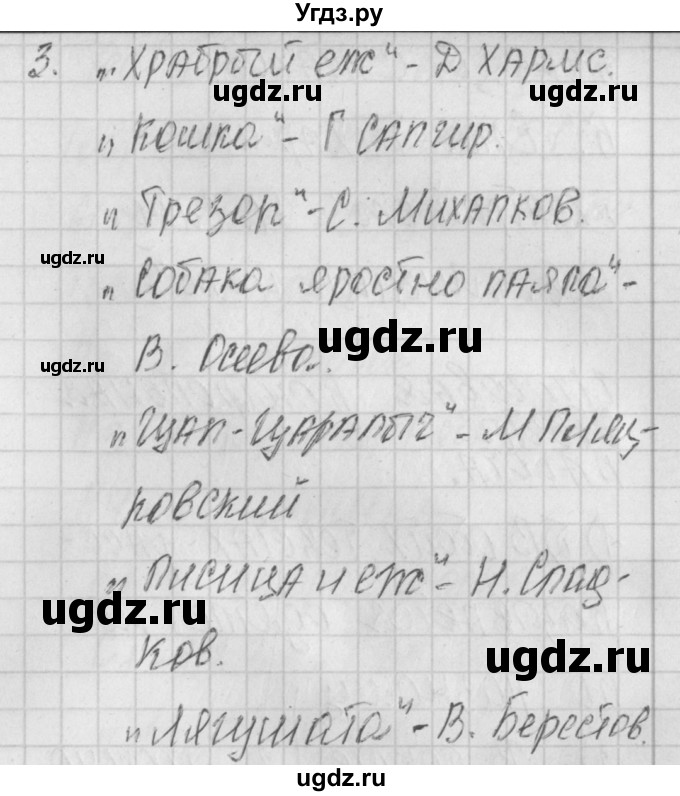 Угдз.ру
3. „Храбрый еж" - Д Хармс.
ugdz.ru ugdz.ru
„Кошка" - Г Сапгир.
„Трезор" - С. Михалков.
ugdz.ru ugdz.ru
„Собака яростно лаяла" -
ugdz.ru
ugdz.ru В. Осеева.
„Цап-Царапыч" - М Пляц-
ковский
„Лисица и еж" - Н. Слад-
ugdz.ru
ков. ugdz.ru
„Лягушата" - В. Берестов.
ugdz.ru